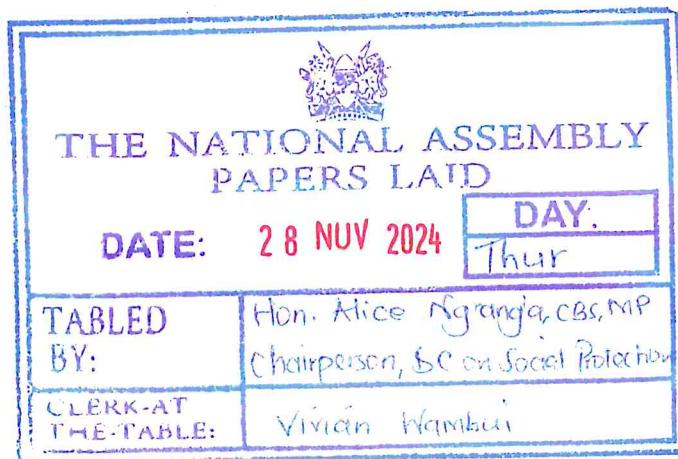 THE NATIONAL ASSEMBLY
PAPERS LAID
DATE: 28 NOV 2024
DAY.
Thur
TABLED BY:
Hon. Alice Ng'ang'a, CBS, MP
Chairperson, DC on Social Protection
CLERK-AT THE-TABLE:
Vivian Wambui